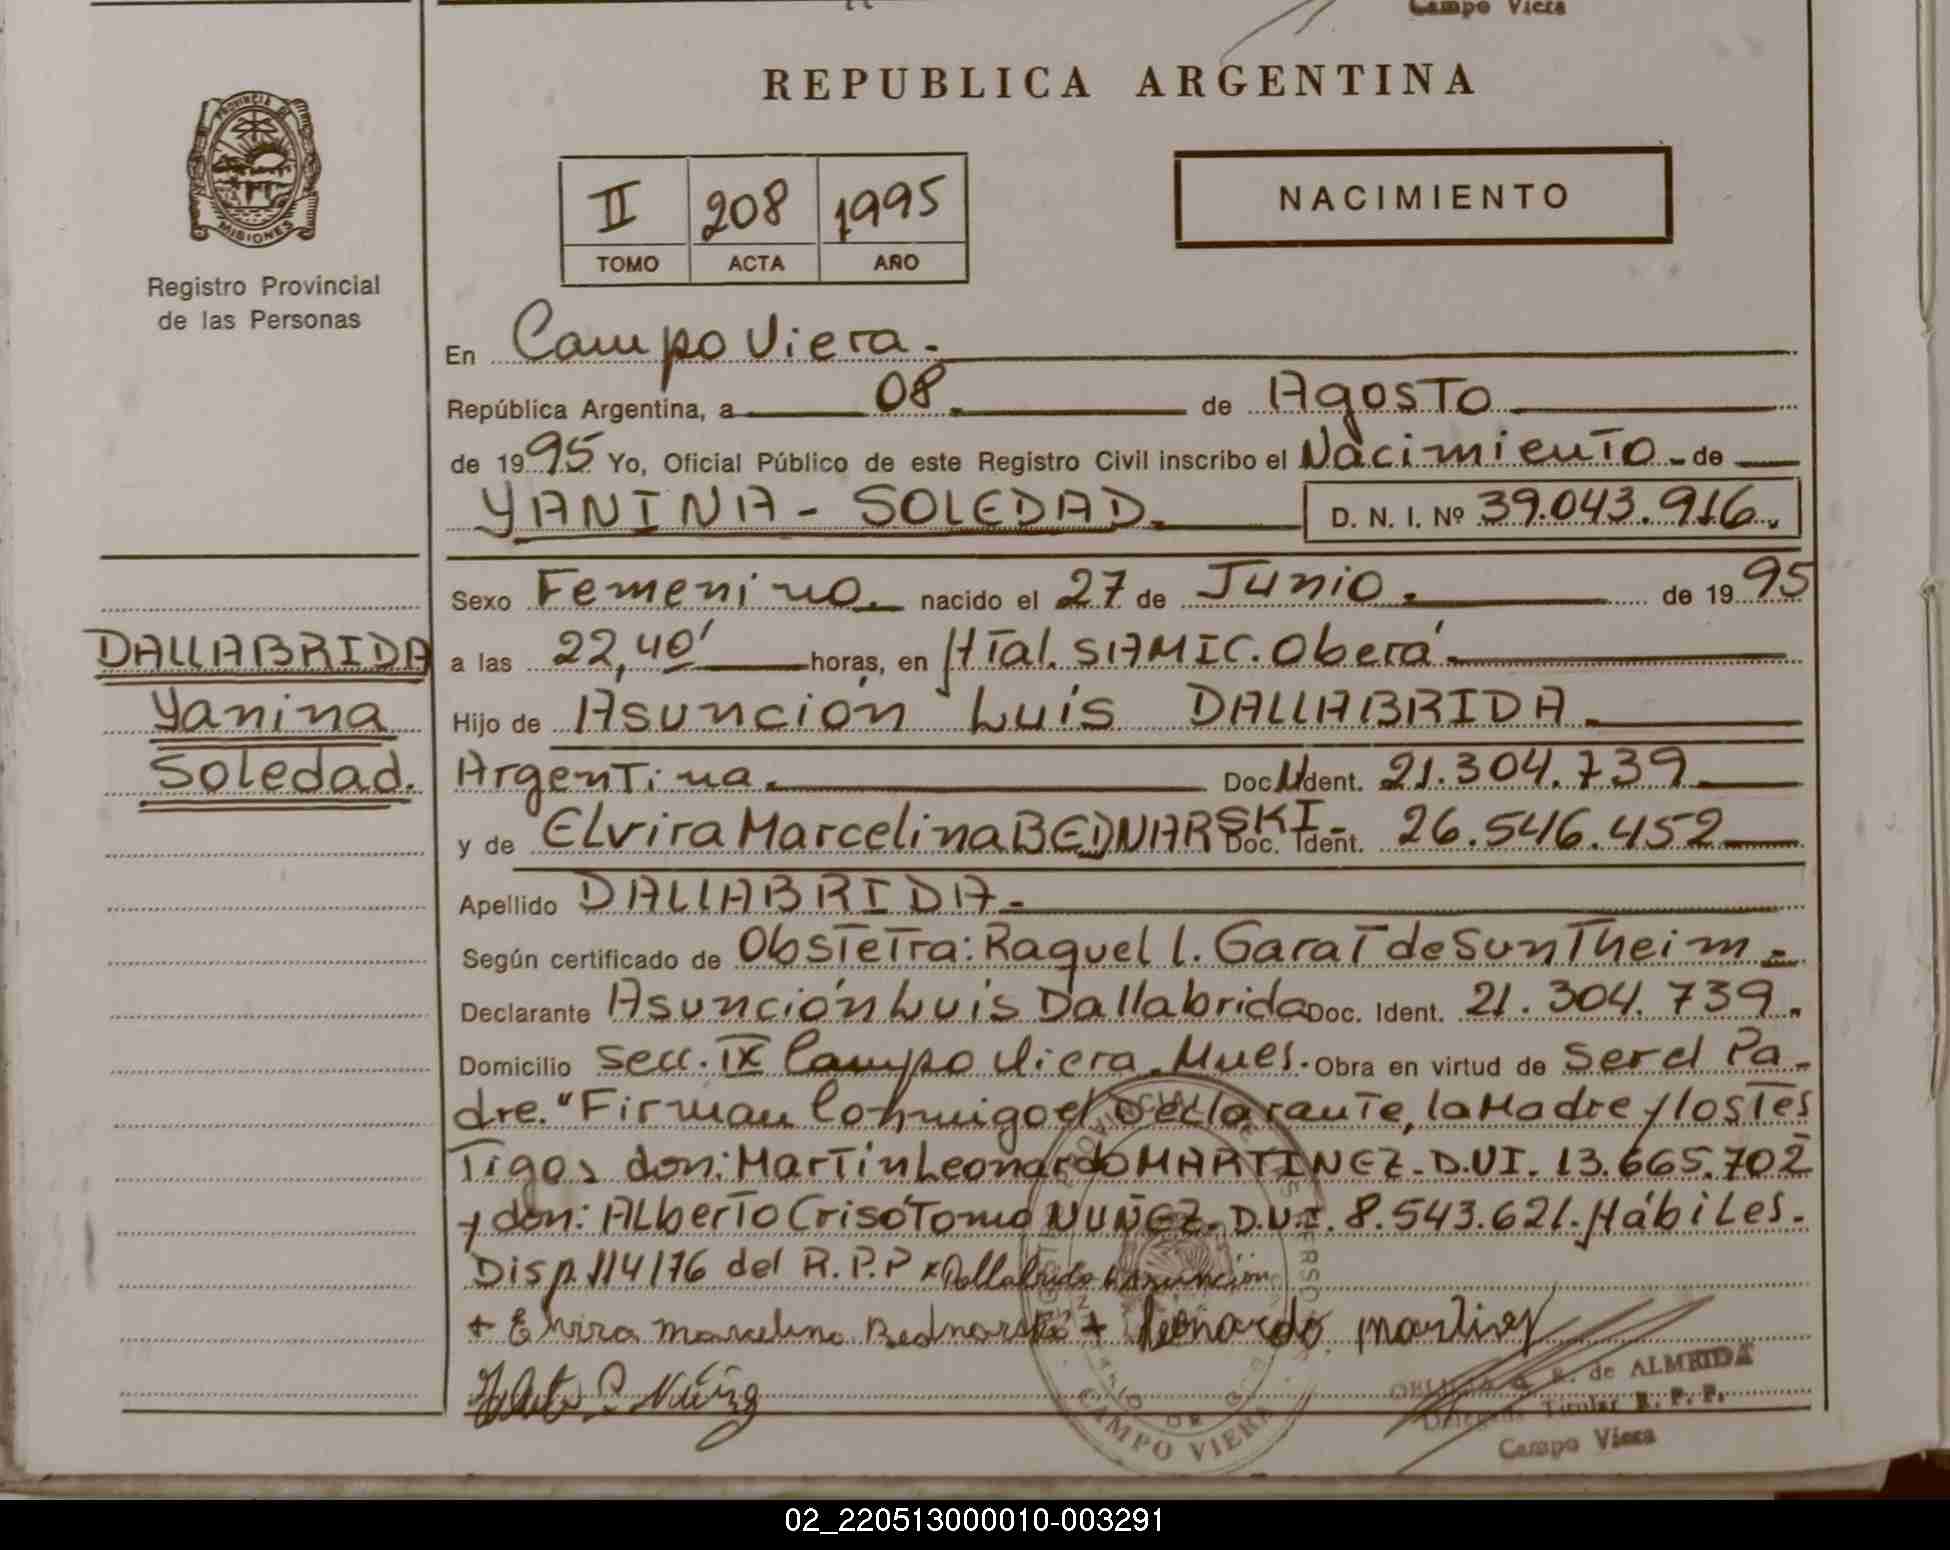 Campo Viera
REPUBLICA ARGENTINA
PROVINCIA DE
MISIONES
Registro Provincial
de las Personas
II 208 1995
TOMO ACTA AÑO
NACIMIENTO
En Campo Viera.-
República Argentina, a 08. de Agosto
de 1995 Yo, Oficial Público de este Registro Civil inscribo el Nacimiento - de
YANINA - SOLEDAD. D. N. I. Nº 39.043.916.
Sexo Femenino. nacido el 27 de Junio. de 1995
DALLABRIDA
Yanina
Soledad.
a las 22,40' horas, en Htal. SAMIC. Oberá
Hijo de Asunción Luis DALLABRIDA
Argentina. Doc. Ident. 21.304.739
y de Elvira Marcelina BEDNARSKI- Doc. Ident. 26.546.452
Apellido DALLABRIDA-
Según certificado de Obstetra: Raquel l. Garat de Suntheim -
Declarante Asunción Luis Dallabrida Doc. Ident. 21.304.739.
Domicilio Secc. IX Campo Viera. Mnes. Obra en virtud de Ser el Pa-
dre. "Firman Conmigo el Declarante, la Madre y los Tes
Tigos don: Martin Leonardo MARTINEZ- D.NI. 13.665.702
y don: Alberto Crisótomo NUÑEZ. D.N.I. 8.543.621. Hábiles.
Disp. 114/76 del R.P.P x Dallabrida Asunción
+ Elvira Marcelina Bednarski + Leonardo martinez
R. de ALMEIDA
Delegada Titular R. P. P.
Campo Viera
CAMPO VIERA
02_220513000010-003291